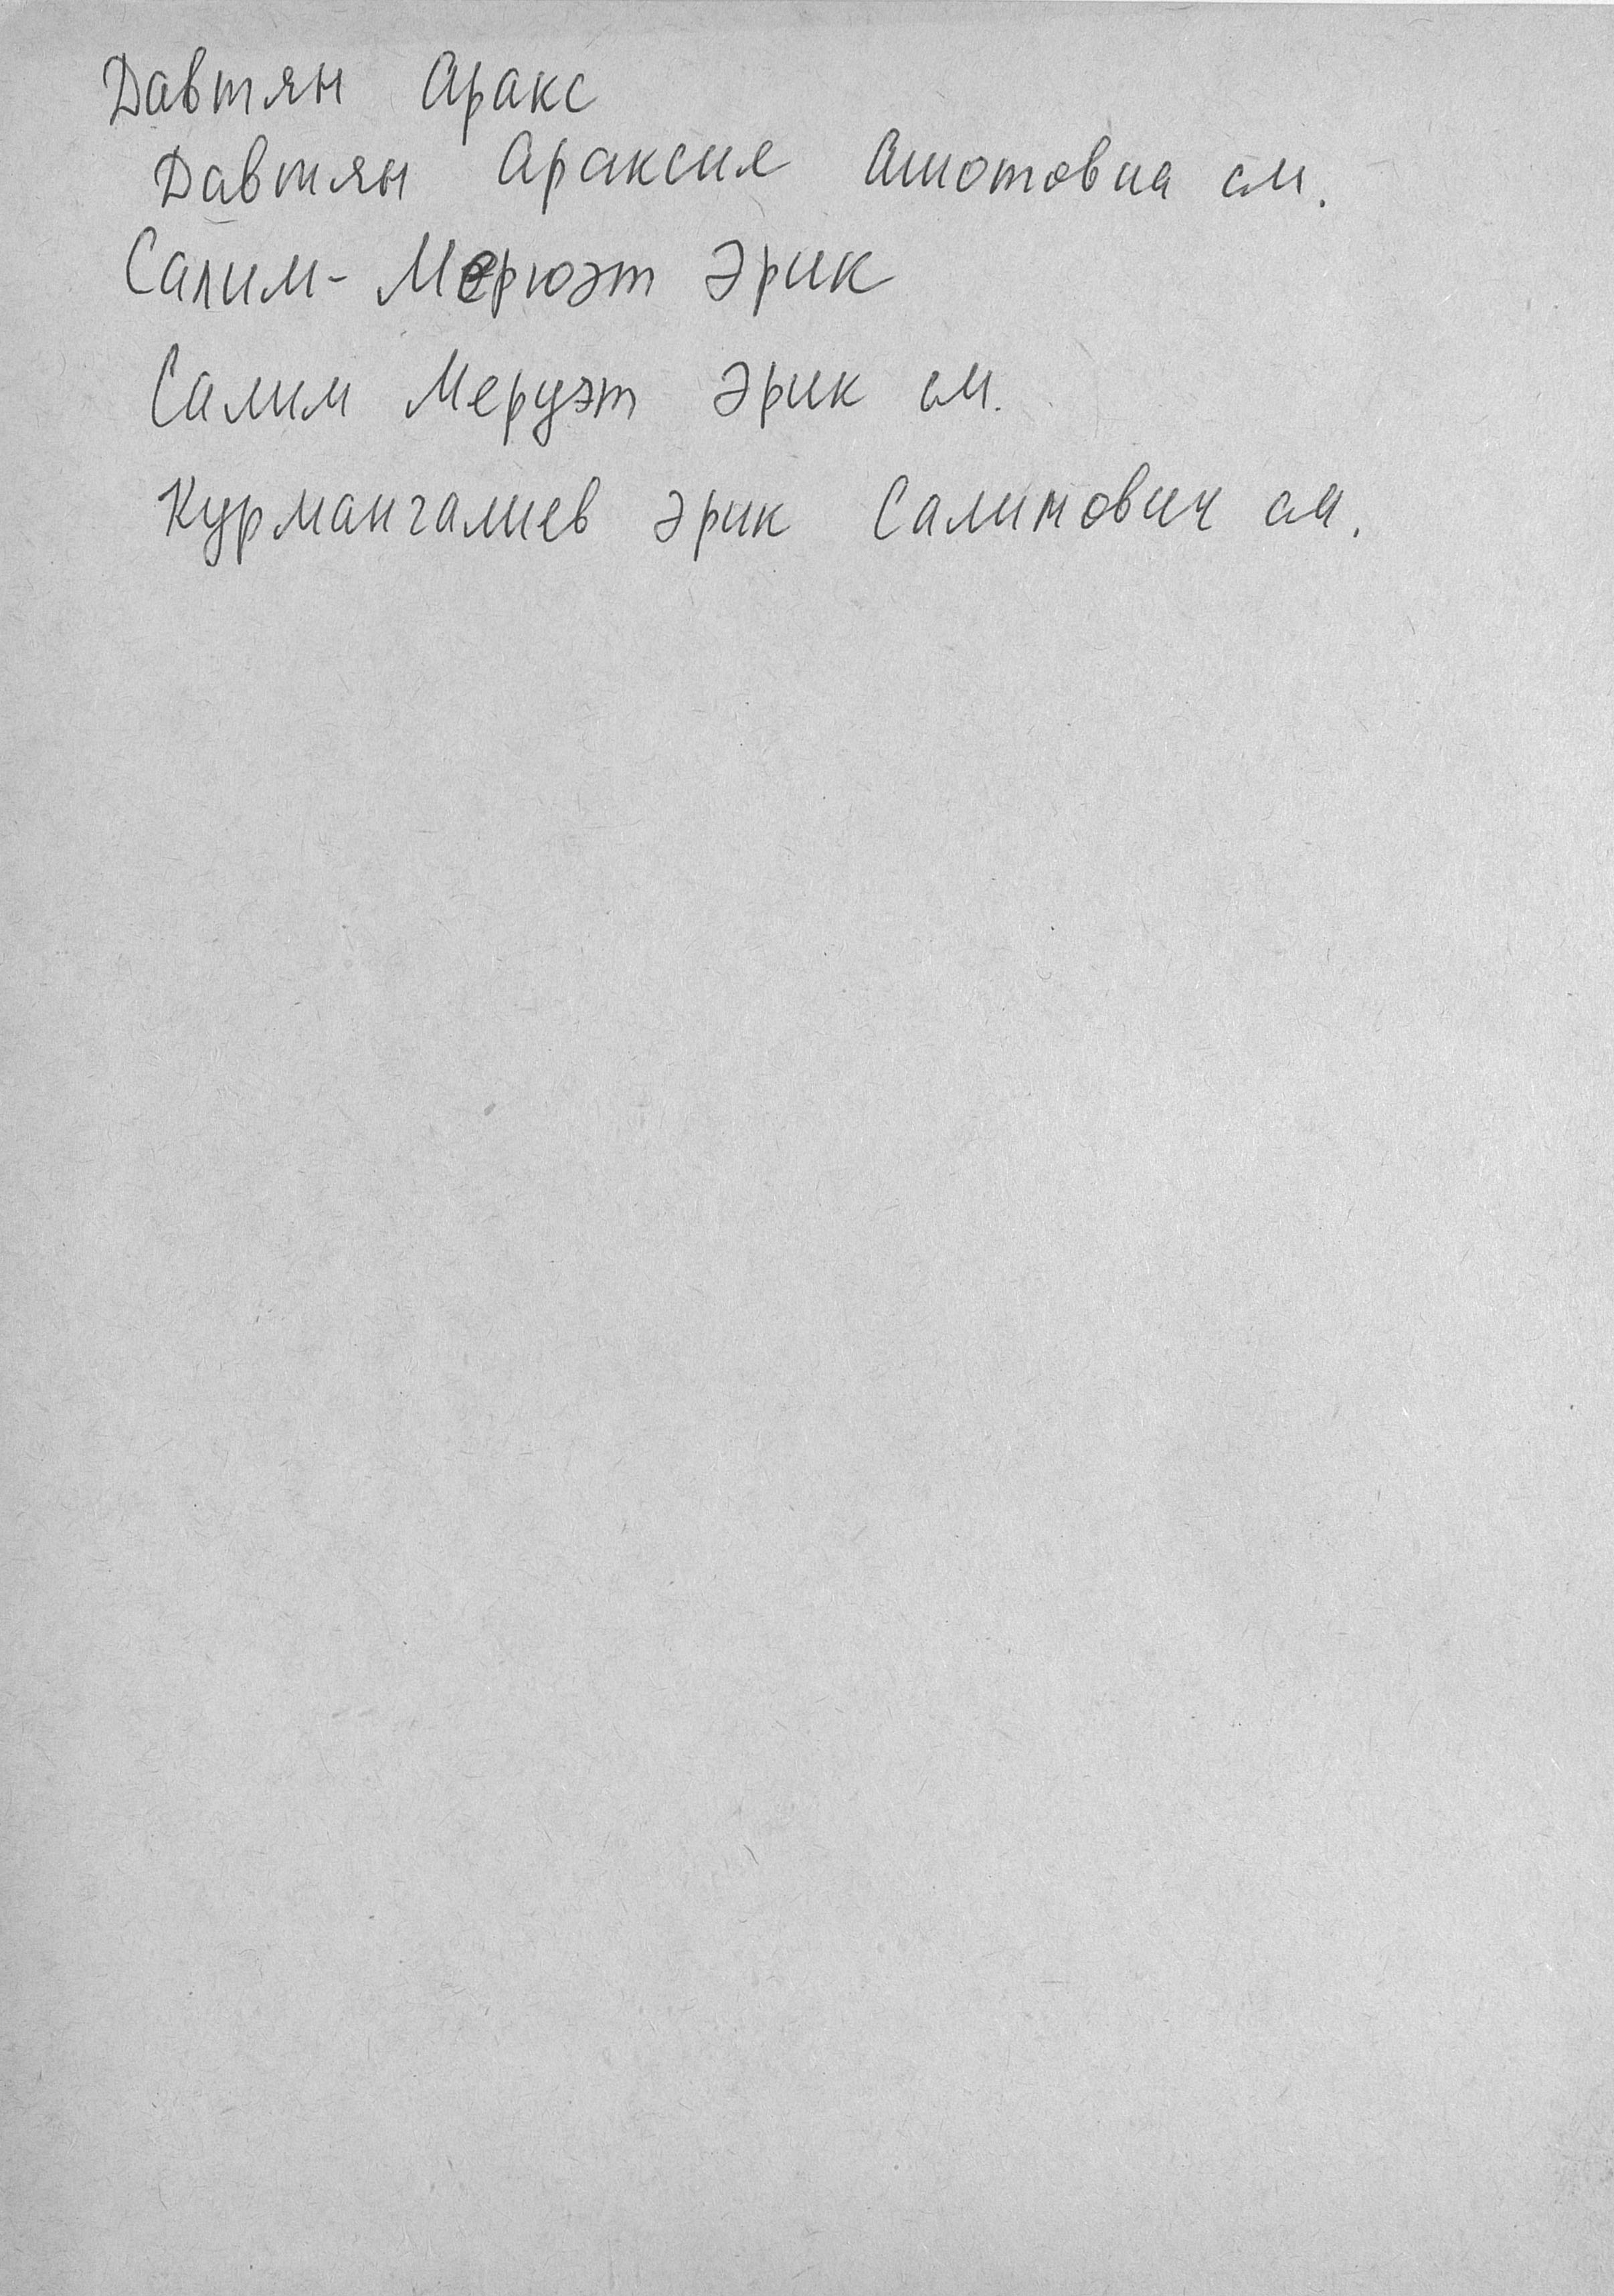 Давтян Аракс
Давтян Араксия Ашотовна см.
Салим- Мерюэт Эрик
Салим Меруэт Эрик см.
Курмангалиев Эрик Салимович см.